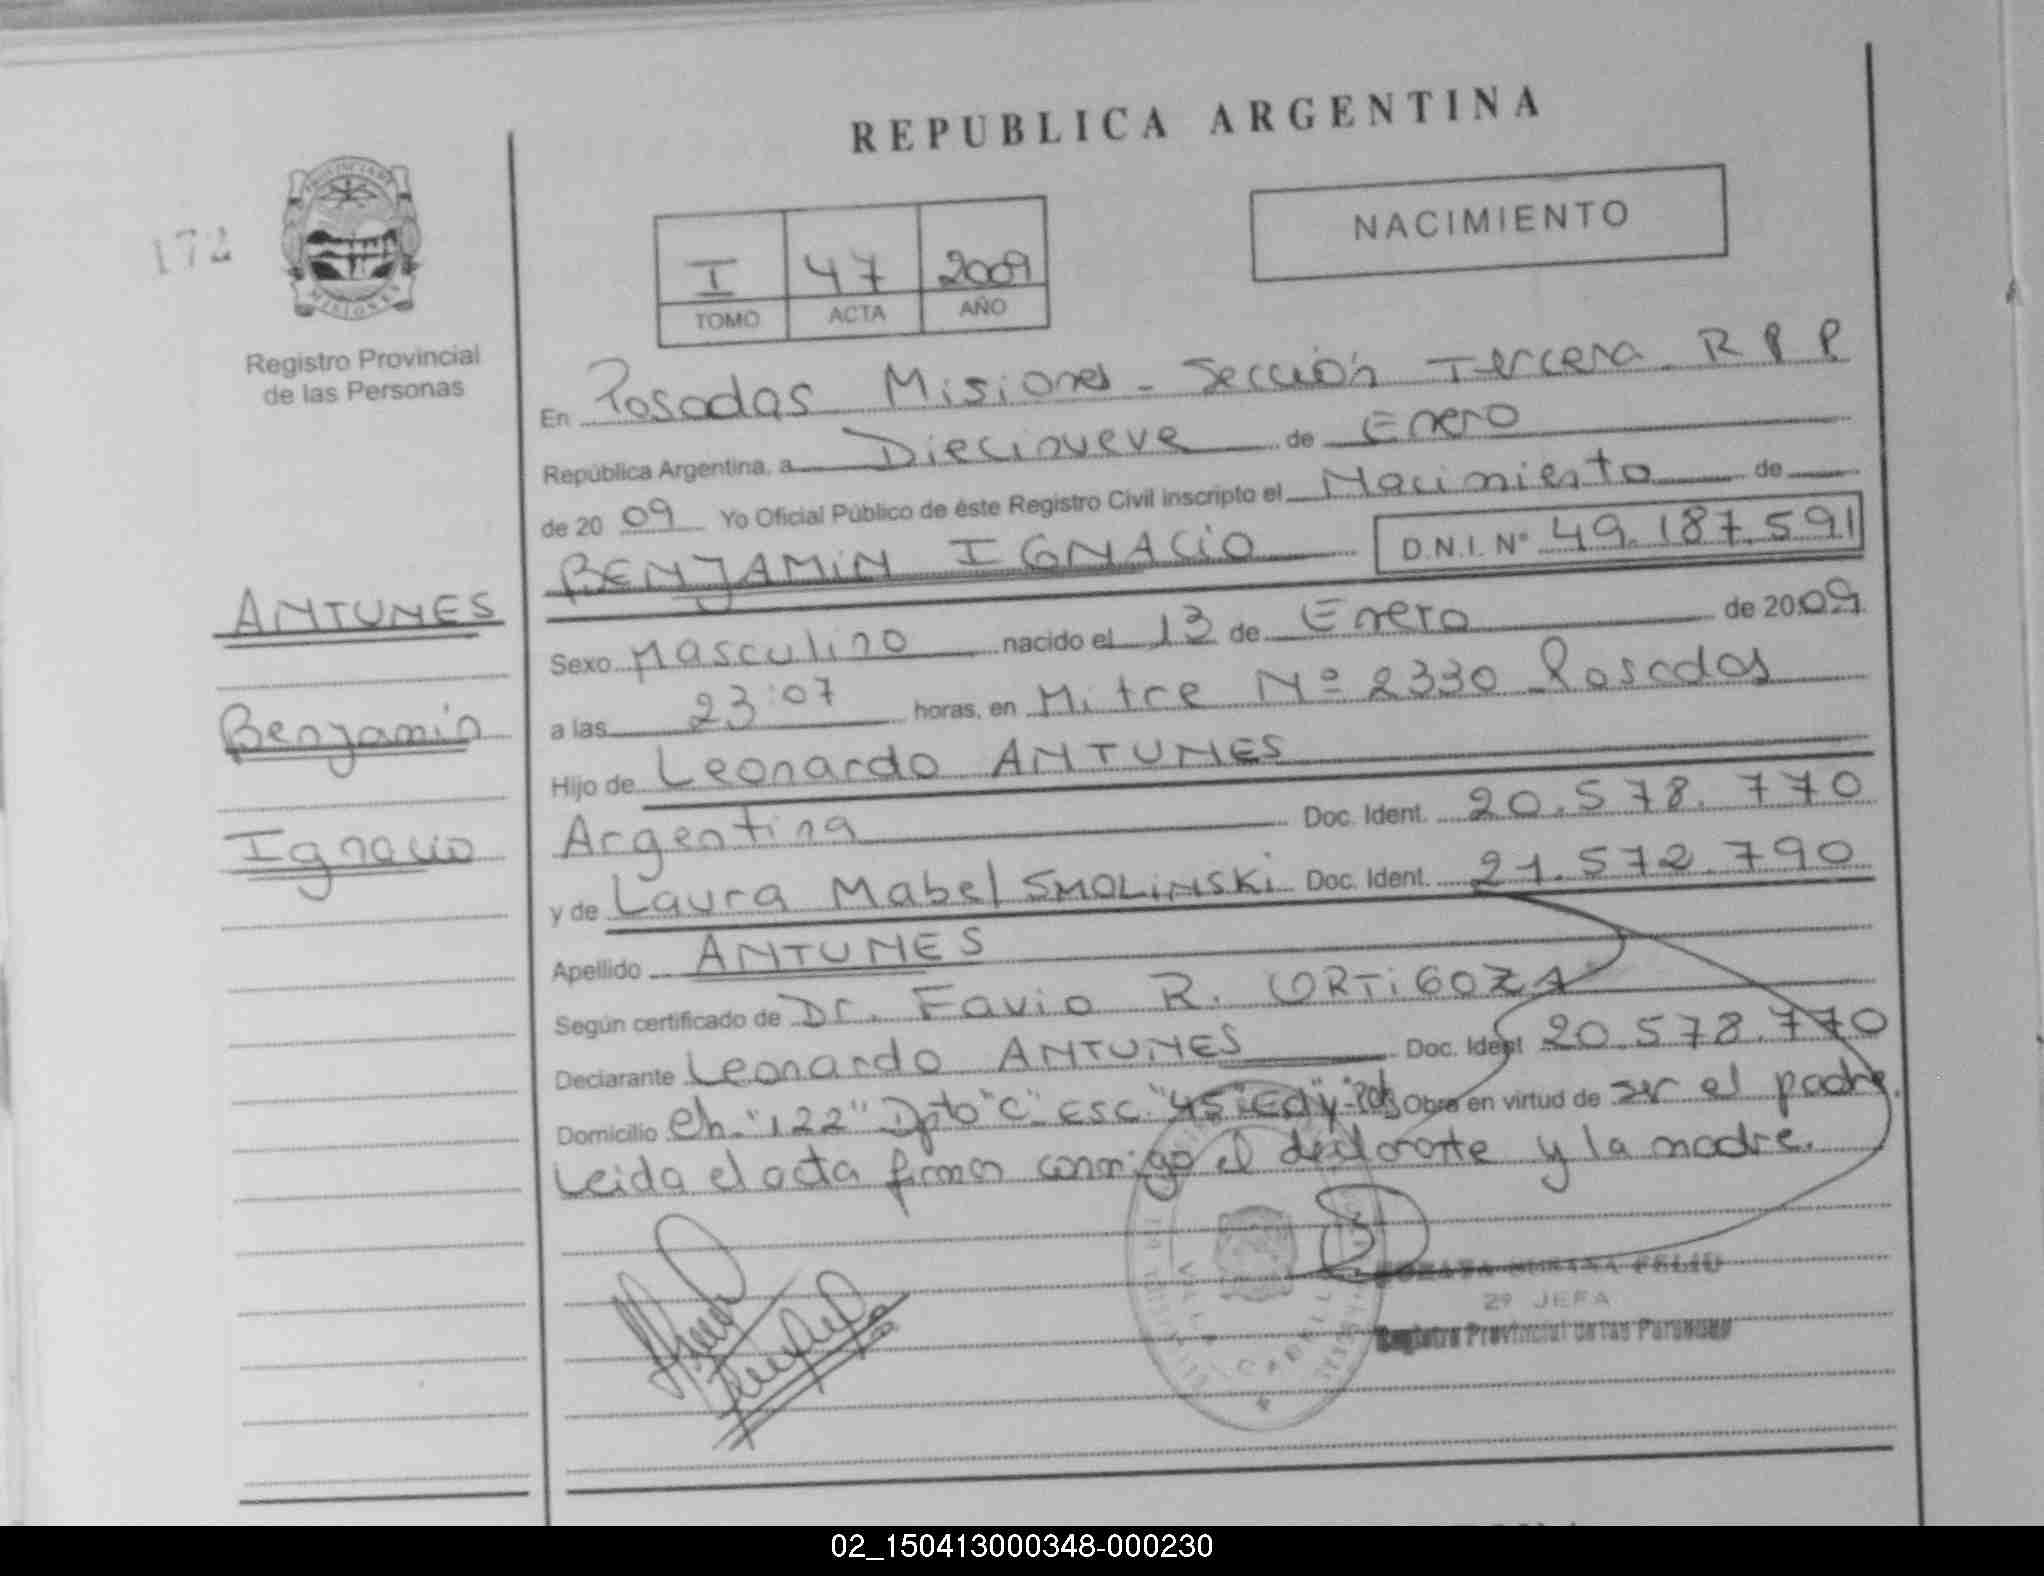 REPUBLICA ARGENTINA
172
PROVINCIA DE
MISIONES
Registro Provincial
de las Personas
NACIMIENTO
I 47 2009
TOMO ACTA AÑO
En Posadas Misiones - Sección Tercera R P P
República Argentina, a Diecinueve de Enero
de 20 09 Yo Oficial Público de éste Registro Civil inscripto el Nacimiento de
BENJAMIN IGNACIO D.N.I. Nº 49.187.591
ANTUNES
Benjamin
Ignacio
Sexo Masculino nacido el 13 de Enero de 2009
a las 23:07 horas, en Mitre Nº 2330 Posadas
Hijo de Leonardo ANTUNES
Argentina Doc. Ident. 20.578.770
y de Laura Mabel SMOLINSKI Doc. Ident. 21.572.790
Apellido ANTUNES
Según certificado de Dr. Favio R. ORTIGOZA
Declarante Leonardo ANTUNES Doc. Ident 20.578.770
Domicilio Ch. "122" Dpto "C" Esc. "45" Obre en virtud de ser el padre.
Leida el acta firman conmigo el declarante y la madre.
2º JEFA
Registro Provincial de las Personas
02_150413000348-000230